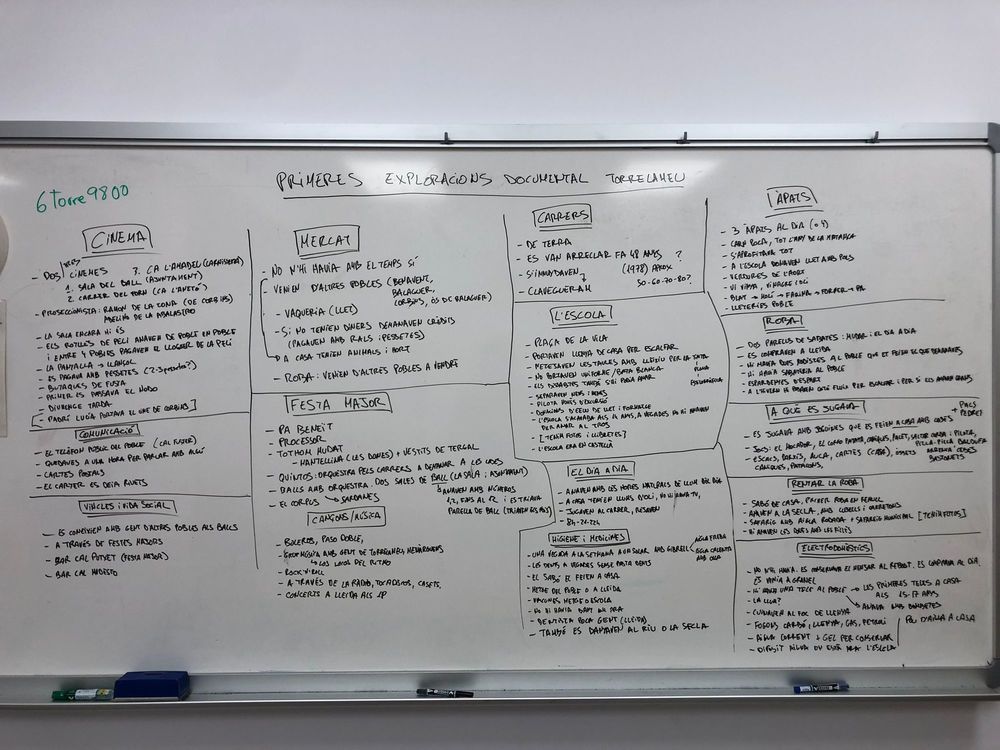 6Torre9800
PRIMERES EXPLORACIONS DOCUMENTAL TORRELAMEU
CINEMA
- DOS CINEMES
1. SALA DEL BALL (AJUNTAMENT)
2. CARRER DEL FORN (CA L'ANETÓ)
3. CA L'AMADEU (CARNISSERIA)
- PROSECCIONISTA: RAMON DE LA ZONA (DE CORBINS)
- LA SALA ENCARA HI ÉS
- ELS ROTLLES DE PELI ANAVEN DE POBLE EN POBLE
I ENTRE 4 POBLES PAGAVEN EL LLOGUER DE LA PELI
- LA PANTALLA → LLANÇOL
- ES PAGAVA AMB PESSETES
- BUTAQUES DE FUSTA
- PRIMER ES PASSAVA EL NODO
- DIUMENGE TARDA
- PADRÍ LUCÍA PORTAVA EL CINE DE CORBINS
COMUNICACIÓ
- EL TELÈFON PÚBLIC DEL POBLE (CAL FUTER)
- QUEDAVES A UNA HORA PER PARLAR AMB ALGÚ
- CARTES POSTALS
- EL CARTER ES DEIA
VINCLES I VIDA SOCIAL
- ES CONEIXIEN AMB GENT D'ALTRES POBLES ALS BALLS
- A TRAVÉS DE FESTES MAJORS
- BAR CAL POTVET (FESTA MAJOR)
- BAR CAL MODESTO
MERCAT
- NO N'HI HAVIA AMB EL TEMPS SÍ
- VENIEN D'ALTRES POBLES (BENAVENT,
BALAGUER,
CORBINS, ÓS DE BALAGUER)
- VAQUERIA (LLET)
- SI NO TENIEN DINERS DEMANAVEN CRÈDITS
(PAGAVEN AMB RALS I PESSETES)
→ A CASA TENIEN ANIMALS I HORT
- ROBA: VENIEN D'ALTRES POBLES A VENDRE
FESTA MAJOR
- PA BENEIT
- PROCESSOR
- TOTHOM MUDAT
- MANTELLINA (LES DONES) + VESTITS DE TERGAL
- QUINTOS: ORQUESTRA PELS CARRERS A DEMANAR A LES CASES
- BALLS AMB ORQUESTRA. DOS SALES DE BALL (LA SALA I AJUNTAMENT)
- EL CORPUS → SARDANES
ANAVEN AMB NÚMEROS
1,2, FINS AL 12 I ES TRIAVA
PARELLA DE BALL
CANÇONS/MÚSICA
- BOLEROS, PASO DOBLE,
- GRUP MÚSICA AMB GENT DE TORRELAMEU
- ROCK'N'ROLL
- A TRAVÉS DE LA RADIO, TOCADISCOS, CASETS.
- CONCERTS A LLEIDA ALS
CARRERS
- DE TERRA
- ES VAN ARREGLAR FA 48 ANYS ?
- S'INUNDAVEN (1978) APROX
- CLAVEGUERAM 50-60-70-80?
L'ESCOLA
- PLAÇA DE LA VILA
- PORTAVEN LLENYA DE CASA PER ESCALFAR
- NETEJAVEN LES TAULES AMB LLEIXIU PER LA TINTA
- NO PORTAVEN UNIFORME / BATA BLANCA
- ELS DISSABTES TAMBÉ S'HI PODIA ANAR
- SEPARAVEN NENS I NENES
- DONACIONS D'EEUU DE LLET I FORMATGE
- L'ESCOLA S'ACABAVA ALS 14 ANYS, A VEGADES NO HI ANAVEN
PER ANAR AL TROS
- [TENIM FOTOS I LLIBRETES]
- L'ESCOLA ERA EN CASTELLÀ
EL DIA A DIA
- ANAVEN AMB LES HORES NATURALS DE LLUM DEL DIA
- A CASA TENIEN LLUMS D'OLI, NO HI HAVIA TV,
- JUGAVEN AL CARRER, RESAVEN
- 8h-21-22h
HIGIENE I MEDICINES
- UNA VEGADA A LA SETMANA
- LES DENTS A VEGADES SENSE PASTA DENTS
- EL SABÓ EL FEIEN A CASA.
- METGE DEL POBLE O A LLEIDA
- VACUNES METGE O ESCOLA
- NO HI HAVIA TANT COM ARA
- DENTISTA POCA GENT (LLEIDA)
- TAMBÉ ES BANYAVEN AL RIU O LA SECLA
AIGUA FREDA
AIGUA CALENTA
AMB OLLA
ÀPATS
- 3 ÀPATS AL DIA (o 4)
- CARN POCA, TOT L'ANY DE LA MATANÇA
- S'APROFITAVA TOT
- A L'ESCOLA DONAVEN LLET AMB POLS
- VERDURES DE L'HORT
- VI VINYA, VINAGRE I OLI
- BLAT → MOLÍ → FARINA → FORNER → PA
- LLETERIES POBLE
ROBA
- DOS PARELLS DE SABATES: MUDAR I EL DIA A DIA
- ES COMPRAVEN A LLEIDA
- HI HAVIA DOS MODISTES AL POBLE QUE ET FEIEN EL QUE DEMANAVES
- HI HAVIA SABATERIA AL POBLE
- ESPARDENYES D'ESPART
A QUÈ ES JUGAVA
+ PALS
PEDRES
- ES JUGAVA AMB JOGUINES QUE ES FEIEN A CASA AMB COSES
- JOCS: EL MOCADOR, EL CORRO PATATA, CANIQUES, PALET, SALTAR CORDA I PILOTA,
- ESCACS, PARXÍS, AUCA, CARTES (CASA), OSSETS
PILLA-PILLA BALDUFA
CANIQUES, PATACONS,
RENTAR LA ROBA
- SABÓ DE CASA,
- ANAVEN A LA SECLA, AMB CUBELLS I CARRETONS
- SAFAREIG AMB AIGUA RODADA + SAFAREIG MUNICIPAL [TENIM FOTOS]
- HI ANAVEN LES DONES AMB LES FILLES
ELECTRODOMÈSTICS
- NO N'HI HAVIA. ES CONSERVAVA EL MENJAR AL REBOST. ES COMPRAVA AL DIA.
ES VENIA A GRANEL
- HI HAVIA UNA TELE AL POBLE → LES PRIMERES TELES A CASA
ALS 15-17 ANYS
- LA LLUM? ANAVA AMB MONEDETES
- CUINAVEN AL FOC DE LLENYA
- FOGONS CARBÓ, LLENYA, GAS, PETROLI
- AIGUA CORRENT + GEL PER CONSERVAR
- DIPÒSIT AIGUA ON ESTÀ ARA L'ESCOLA
POU D'AIGUA A CASA